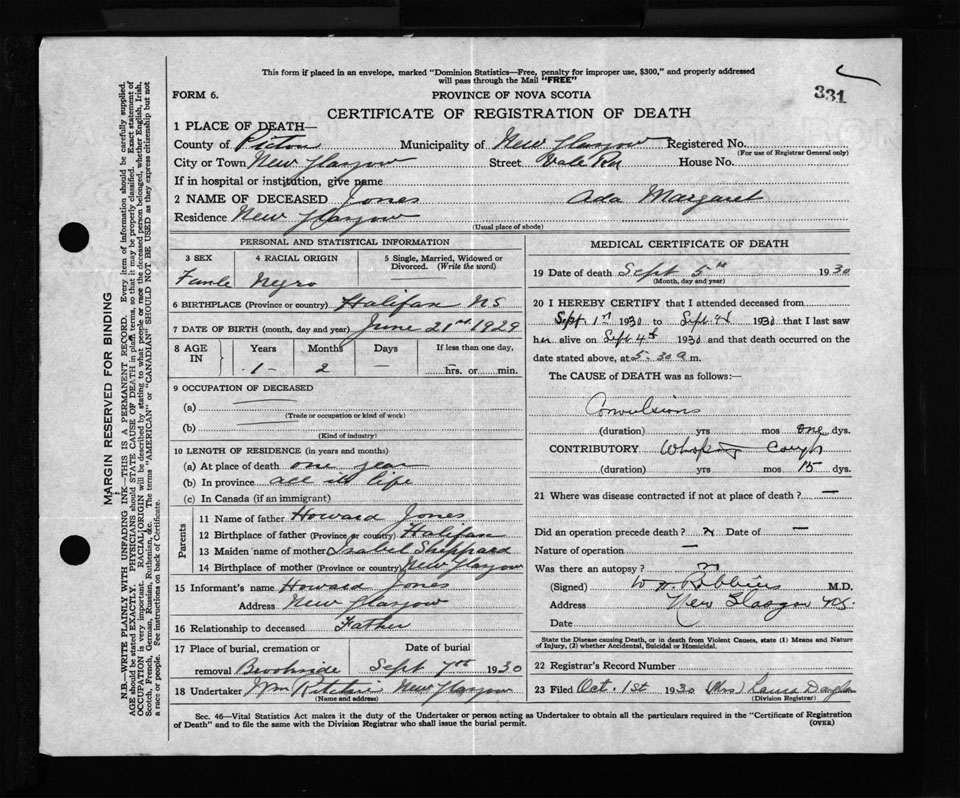 This form if placed in an envelope, marked "Dominion Statistics—Free, penalty for improper use, $300," and properly addressed
will pass through the Mail "FREE"
FORM 6. PROVINCE OF NOVA SCOTIA 331
CERTIFICATE OF REGISTRATION OF DEATH
1 PLACE OF DEATH—
County of Pictou Municipality of New Glasgow Registered No.
(For use of Registrar General only)
City or Town New Glasgow Street Vale Rd House No.
If in hospital or institution, give name
2 NAME OF DECEASED Jones Ada Margaret
Residence New Glasgow
(Usual place of abode)
PERSONAL AND STATISTICAL INFORMATION
3 SEX 4 RACIAL ORIGIN 5 Single, Married, Widowed or
Divorced. (Write the word)
Famle Negro
6 BIRTHPLACE (Province or country) Halifax NS
7 DATE OF BIRTH (month, day and year) June 21st 1929
8 AGE IN Years Months Days If less than one day,
1 2 — hrs. or min.
9 OCCUPATION OF DECEASED
(a)
(Trade or occupation or kind of work)
(b)
(Kind of industry)
10 LENGTH OF RESIDENCE (in years and months)
(a) At place of death one year
(b) In province all its life
(c) In Canada (if an immigrant)
Parents
11 Name of father Howard Jones
12 Birthplace of father (Province or country) Halifax
13 Maiden name of mother Isabel Sheppard
14 Birthplace of mother (Province or country) New Glasgow
15 Informant's name Howard Jones
Address New Glasgow
16 Relationship to deceased Father
17 Place of burial, cremation or Date of burial
removal Brookside Sept 7th 1930
18 Undertaker Wm Ritchie New Glasgow
(Name and address)
MEDICAL CERTIFICATE OF DEATH
19 Date of death Sept 5th 1930
(Month, day and year)
20 I HEREBY CERTIFY that I attended deceased from
Sept 1st 1930 to Sept 4th 1930 that I last saw
her alive on Sept 4th 1930 and that death occurred on the
date stated above, at 5.30 a m.
The CAUSE of DEATH was as follows:—
Convulsions
(duration) yrs mos one dys.
CONTRIBUTORY Whoping Cough
(duration) yrs mos 15 dys.
21 Where was disease contracted if not at place of death? —
Did an operation precede death? n Date of —
Nature of operation —
Was there an autopsy? no
(Signed) W H Robbins M.D.
Address New Glasgow NS.
Date
State the Disease causing Death, or in death from Violent Causes, state (1) Means and Nature
of Injury, (2) whether Accidental, Suicidal or Homicidal.
22 Registrar's Record Number
23 Filed Oct. 1st 1930 (Mrs) Laura
(Division Registrar)
Sec. 46—Vital Statistics Act makes it the duty of the Undertaker or person acting as Undertaker to obtain all the particulars required in the "Certificate of Registration
of Death" and to file the same with the Division Registrar who shall issue the burial permit. (OVER)
MARGIN RESERVED FOR BINDING
N.B.—WRITE PLAINLY WITH UNFADING INK—THIS IS A PERMANENT RECORD. Every item of information should be carefully supplied.
AGE should be stated EXACTLY. PHYSICIANS should STATE CAUSE OF DEATH in plain terms, so that it may be properly classified. Exact statement of
OCCUPATION is very important. RACIAL ORIGIN will be described by stating to what people or race the deceased person belonged, whether English, Irish,
Scotch, French, German, Russian, Ruthenian, &c. The terms "AMERICAN" or "CANADIAN" SHOULD NOT BE USED as they express citizenship but not
a race or people. See instructions on back of Certificate.